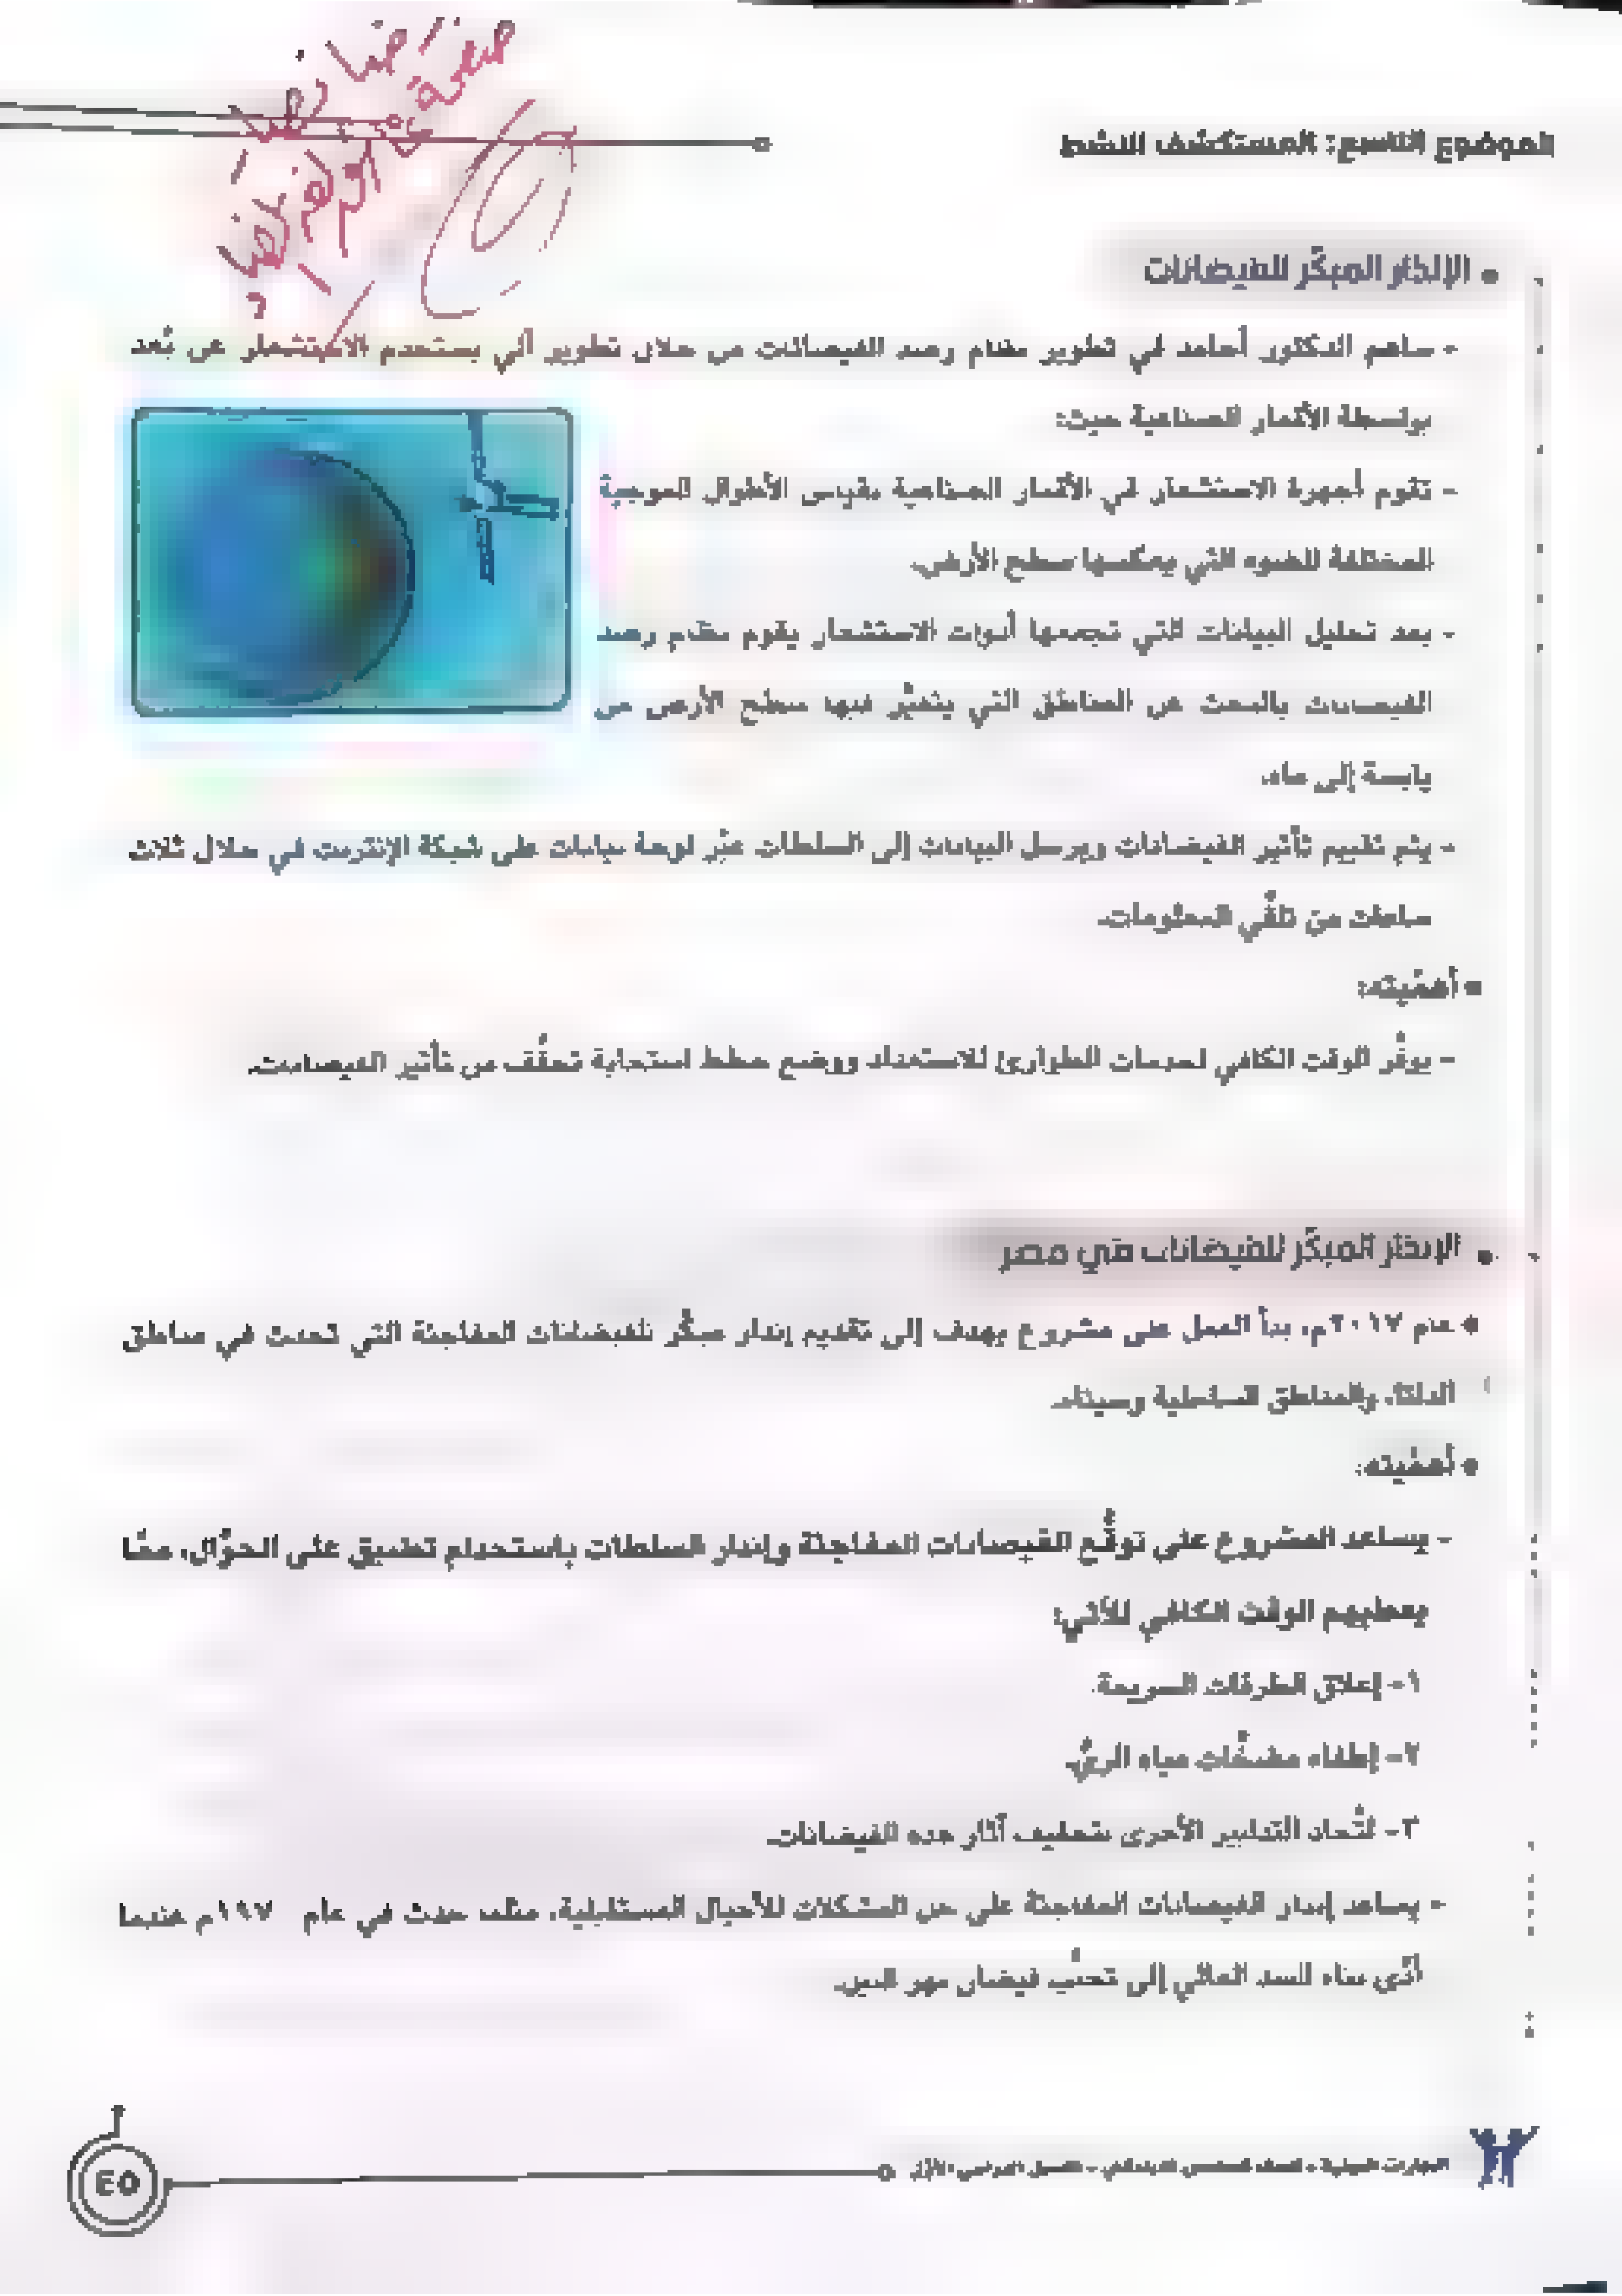 الموضوع التاسع: المستكشف النشط
• الإنذار المبكّر للفيضانات
- ساهم الدكتور أحامد في تطوير نظام رصد الفيضانات من خلال تطوير آلي يستخدم الاستشعار عن بُعد
بواسطة الأقمار الصناعية حيث:
- تقوم أجهزة الاستشعار في الأقمار الصناعية بقياس الأطوال الموجية
المختلفة للضوء التي يعكسها سطح الأرض.
- بعد تحليل البيانات التي تجمعها أدوات الاستشعار يقوم نظام رصد
الفيضانات بالبحث عن المناطق التي يتغيَّر فيها سطح الأرض من
يابسة إلى ماء.
- يتم تقييم تأثير الفيضانات ويرسل البيانات إلى السلطات عبْر لوحة بيانات على شبكة الإنترنت في خلال ثلاث
ساعات من تلقِّي المعلومات.
• أهمّيته:
- يوفِّر الوقت الكافي لخدمات الطوارئ للاستعداد ووضع خطط استجابة تخفِّف من تأثير الفيضانات.
• الإنذار المبكّر للفيضانات في مصر
• عام ٢٠١٧م، بدأ العمل على مشروع يهدف إلى تقديم إنذار مبكِّر للفيضانات المفاجئة التي تحدث في مناطق
الدلتا، والمناطق الساحلية وسيناء.
• أهمّيته:
- يساعد المشروع على توقُّع الفيضانات المفاجئة وإنذار السلطات باستخدام تطبيق على الجوَّال، ممَّا
يعطيهم الوقت الكافي للآتي:
١- إغلاق الطرقات السريعة.
٢- إطفاء مضخَّات مياه الريِّ.
٣- اتِّخاذ التدابير الأخرى لتخفيف آثار هذه الفيضانات.
- يساعد إنذار الفيضانات المفاجئة على حل المشكلات للأجيال المستقبلية، مثلما حدث في عام ١٩٧٠م عندما
أدَّى بناء السد العالي إلى تجنُّب فيضان نهر النيل.
٤٥